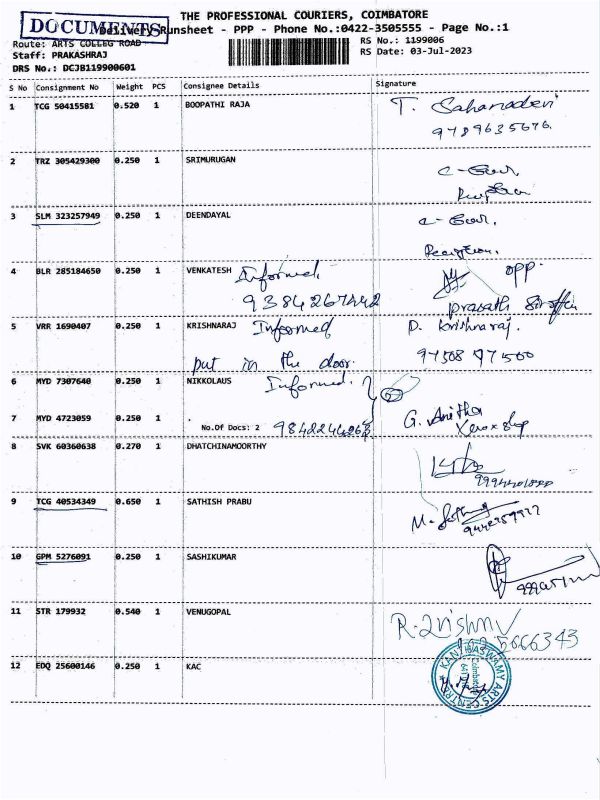 THE PROFESSIONAL COURIERS, COIMBATORE
DOCUMENTS
Delivery Runsheet - PPP - Phone No.:0422-3505555 - Page No.:1
Route: ARTS COLLEG ROAD
RS No.: 1199006
Staff: PRAKASHRAJ
RS Date: 03-Jul-2023
DRS No.: DCJB119900601
S No Consignment No Weight PCS Consignee Details Signature
1 TCG 50415581 0.520 1 BOOPATHI RAJA T. Sahanadevi
9789635676
2 TRZ 305429300 0.250 1 SRIMURUGAN
3 SLM 323257949 0.250 1 DEENDAYAL
Reception.
4 BLR 285184650 0.250 1 VENKATESH Informed opp.
9384267442 prasath
5 VRR 1690407 0.250 1 KRISHNARAJ Informed D. krishnaraj.
put in the door. 97508 77500
6 MYD 7307640 0.250 1 NIKKOLAUS Informed.
7 MYD 4723059 0.250 1 . G. Anitha
No.Of Docs: 2 9842244263 Xerox shop
8 SVK 60360638 0.270 1 DHATCHINAMOORTHY
9 TCG 40534349 0.650 1 SATHISH PRABU
10 GPM 5276091 0.250 1 SASHIKUMAR
11 STR 179932 0.540 1 VENUGOPAL
12 EDQ 25600146 0.250 1 KAC
KANTHASWAMY ARTS CENTRE
Coimbatore